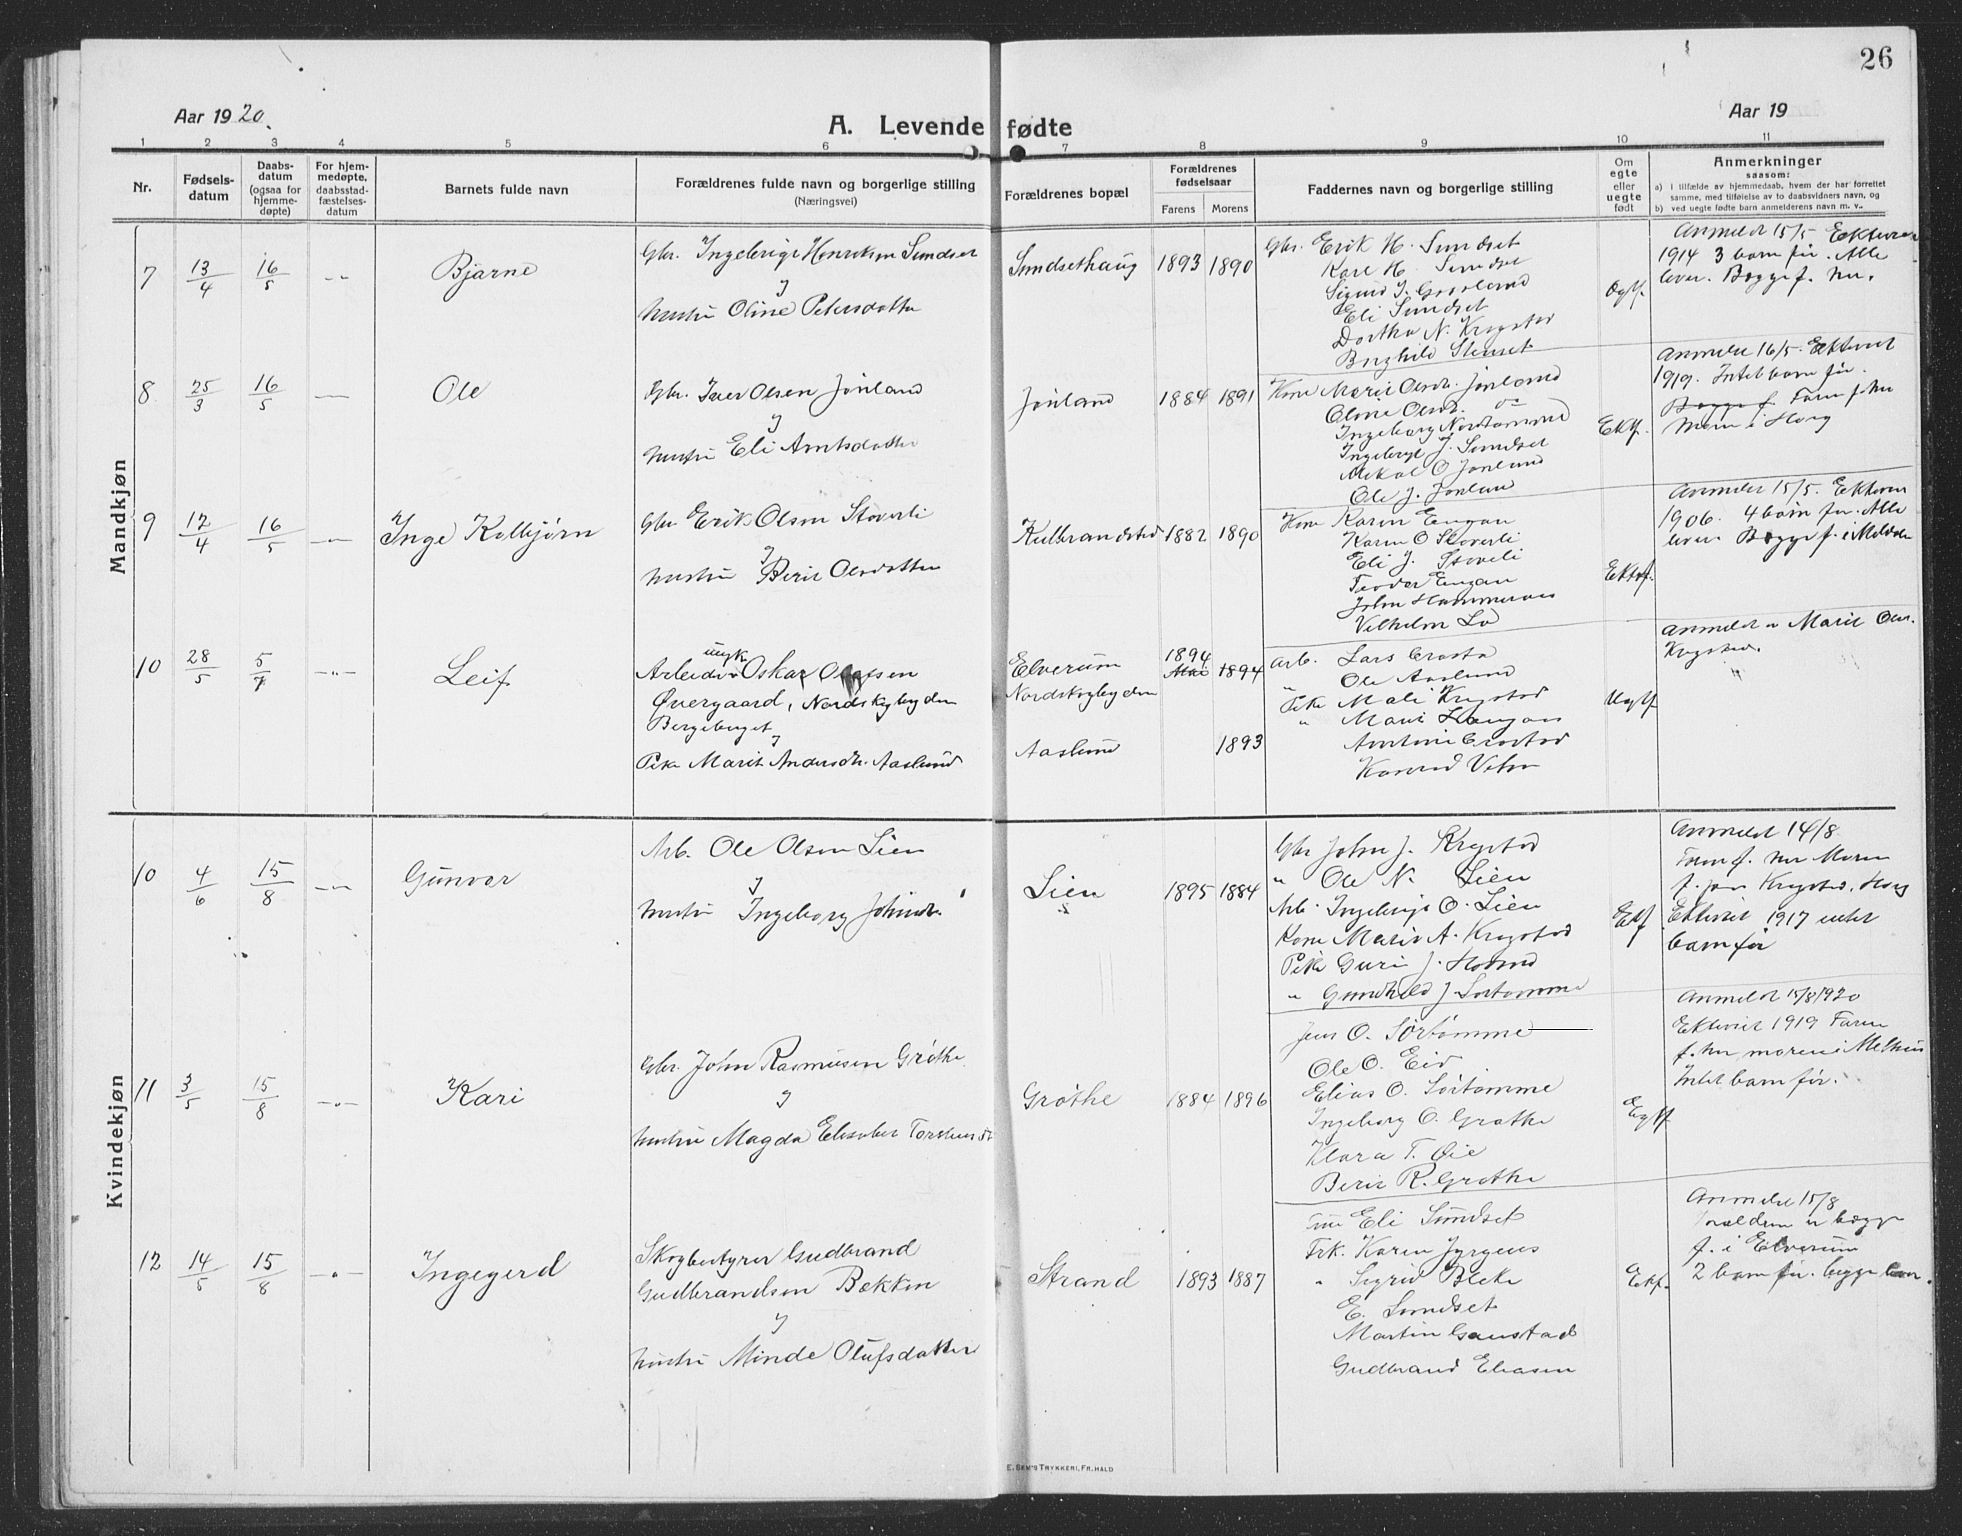 26
Aar 1920.
A. Levende fødte
Aar 19
1 2 3 4 5 6 7 8 9 10 11
Nr.
Fødsels-
datum
Daabs-
datum
(ogsaa for
hjemme-
døpte)
For hjem-
medøpte,
daabsstad-
fæstelses-
datum
Barnets fulde navn
Forældrenes fulde navn og borgerlige stilling
(Næringsvei)
Forældrenes bopæl
Forældrenes
fødselsaar
Farens Morens
Faddernes navn og borgerlige stilling
Om
egte
eller
uegte
født
Anmerkninger
saasom:
a) i tilfælde av hjemmedaab, hvem der har forrettet
samme, med tilføielse av to daabsvidners navn, og
b) ved uegte fødte barn anmelderens navn m. v.
Mandkjøn
7 13/4 16/5 -"- Bjarne
Gbr. Ingebrigt Henriksen Sundset
og
hustru Oline Petersdatter
Sundsethaug 1893 1890
Gbr. Erik H. Sundset
Karl H. Sundset
Sigurd J.
Eli Sundset
Dorthea N. Krogstad
Borghild Stenset
Anmeldt 15/5
1914 3 barn før. Alle
lever. Begge f. her.
8 25/3 16/5 Ole
Gbr. Iver Olsen Jønland
og
hustru Eli Arntsdatter
Jønland 1884 1891
Kone Marit Olsd. Jønland
Oline Olsd. do
Ingeborg Nordtømme
Ingebrigt J. Sundset
Mikal O Jønland
Ole J. Jønland
Ektf.
Anmeldt 16/5. Ektviet
1919. Intet barn før.
Begge f. Faren f. her
Moren i Horg
9 12/4 16/5 Inge Kolbjørn
Gbr Erik Olsen Støverli
og
hustru Berit Olsdatter
Kulbrandsted 1882 1890
Kone Karen Engan
Karen O Støverli
Eli J. Støverli
Teodor Engan
John Hammeraas
Vilhelm Lo
Ektef.
Anmeldt 15/5.
1906. 4 barn før. Alle
lever. Begge f. i Meldalen
10 28/5 5/7 -"- Leif
ungk
Arbeider Oskar Olafsen
Øvergaard, Nordskogbygden
Bergeberget
og
Pike Marit Andersdtr. Aaslund
Elverum
Nordskogbygden
Aaslund
1894 1894
1893
Arb. Lars Crosta
" Ole Aaslund
Pike Mali Krogstad
" Marit Haugan
Konrad
Uegtf
Anmeldt av Marit Olsd.
Krogstad.
Kvindekjøn
10 4/6 15/8 -"- Gunvor
Arb. Ole Olsen Lien
og
hustru Ingeborg Johnsdr.
Lien 1895 1884
Gbr John J. Krogstad
" Ole N. Lien
Arb. Ingebrigt O. Lien
Kone Marit A. Krogstad
Pike Guri J.
" Gunhild J. Sørtømme
Ektf
Anmeldt 14/8
Faren f. her Moren
f. paa Krogstad, Horg
Ektviet 1917 intet
barn før
11 3/5 15/8 -"- Kari
Gbr. John Rasmusen Grøthe
og
hustru Magda Elisabet Torstensdr
Grøthe 1884 1896
Jens O. Sørtømme
Ole O. Eid
Elias O. Sørtømme
Ingeborg O. Grøthe
Klara T. Øie
Berit R. Grøthe
Egtf
Anmeldt 15/8 1920
Ektviet 1919 Faren
f. her moren i Melhus
Intet barn før.
12 14/5 15/8 -"- Ingegerd
Skogbestyrer Gudbrand
Gudbrandsen Bækken
og
hustru Minde Olufsdatter
Strand 1893 1887
Fru Eli Sundset
Frk. Karen Jyrgens
" Sigrid Bleke
E. Sundset
Martin Gaustad
Gudbrand Eliasen
Ektf.
Anmeldt 15/8
Forældrene er begge
f. i Elverum
2 barn før. begge lever.
E. SEM'S TRYKKERI, FR.HALD